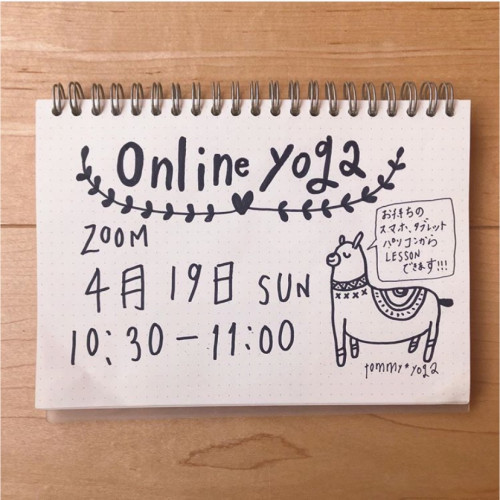 Online yoga
ZOOM
4月19日 SUN
10:30-11:00
お持ちの
スマホ、タブレット
パソコンから
LESSON
できます!!!
tommy*yoga